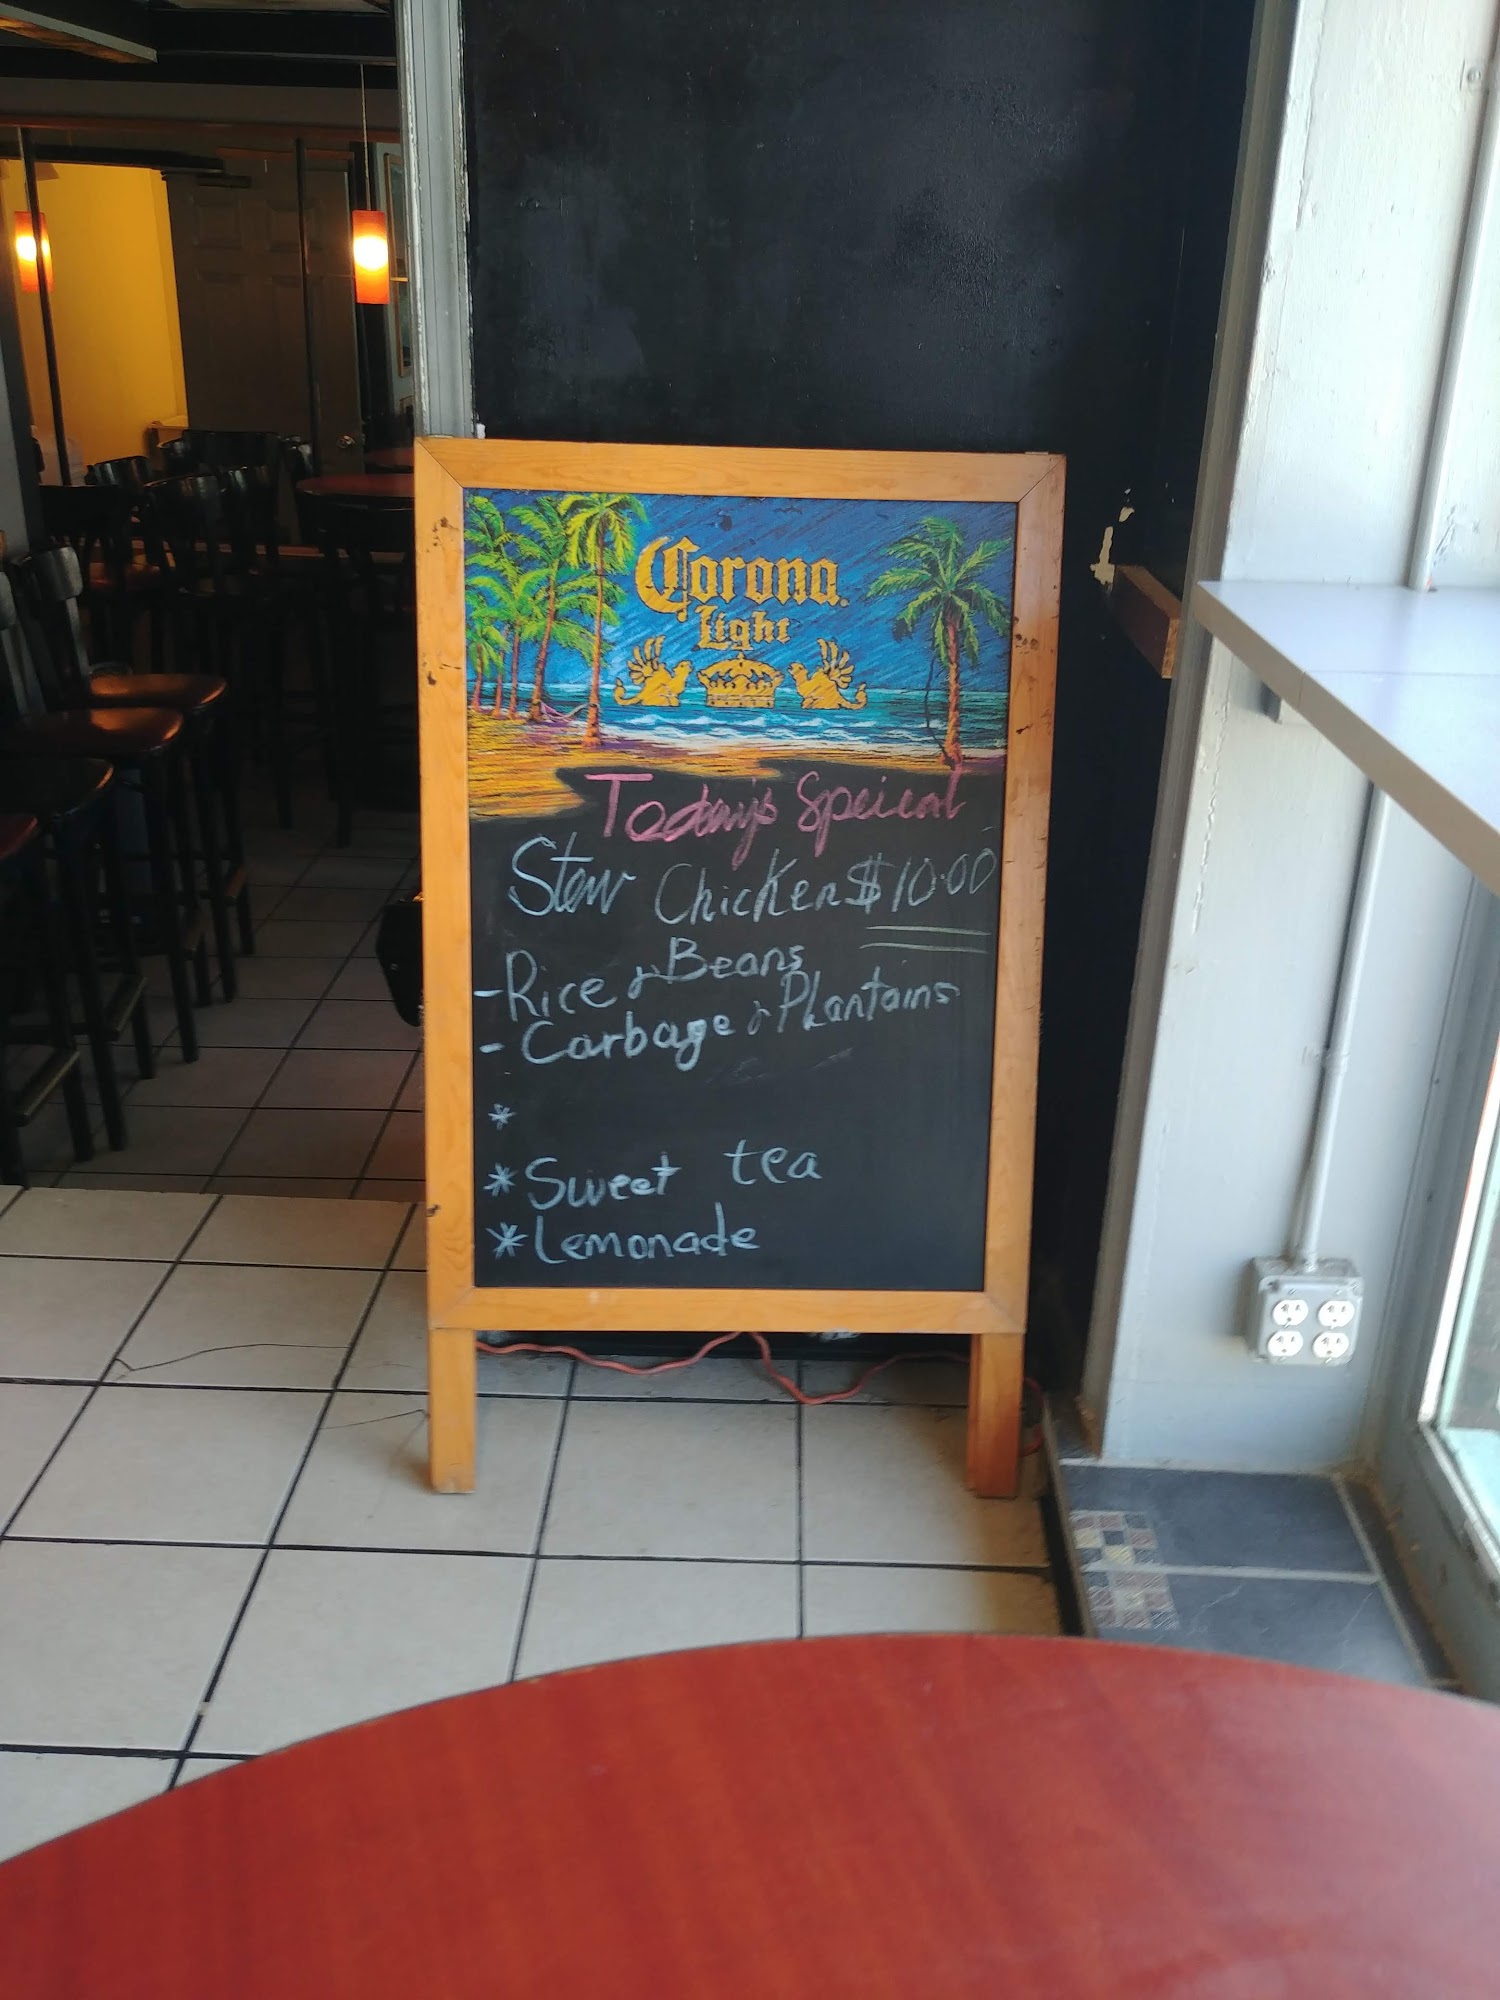 Corona
Light
Today's Speical
Stew Chicken $10.00
- Rice & Beans
- Carbage & Plantains
*
* Sweet tea
* Lemonade